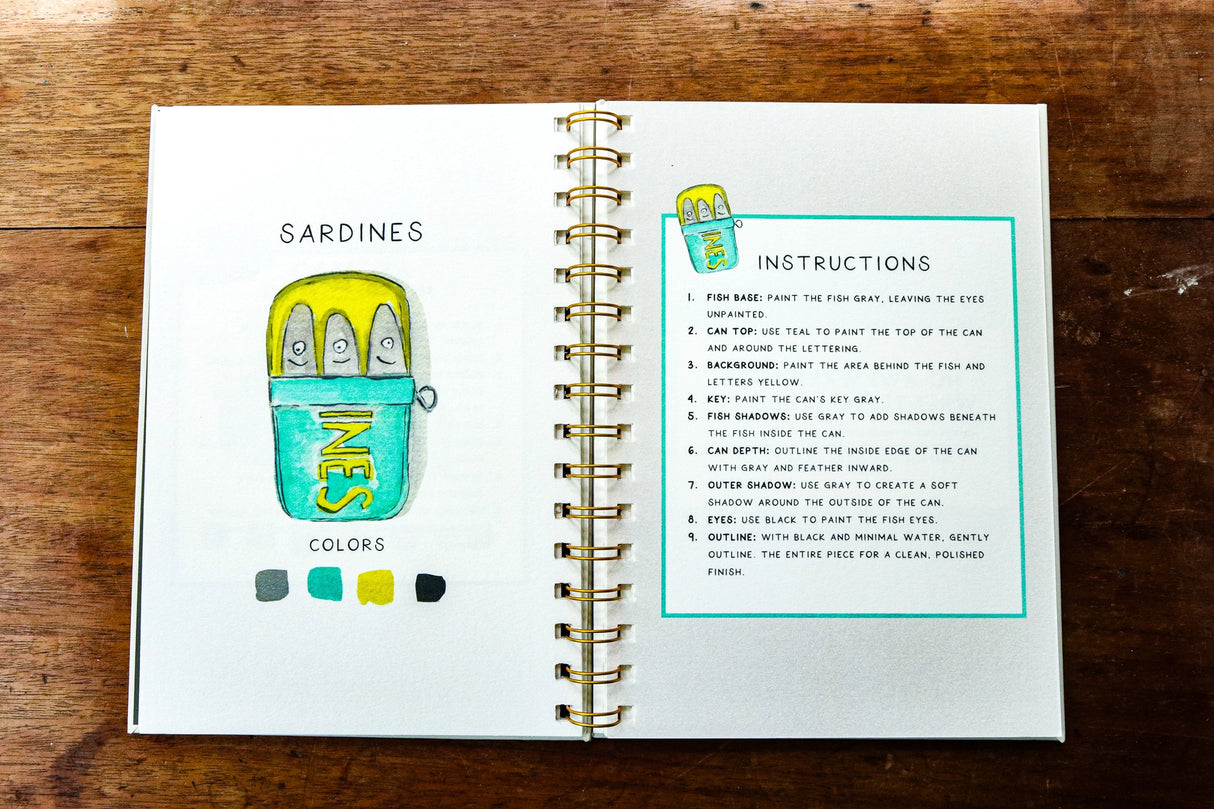 SARDINES
INES
COLORS
INES
INSTRUCTIONS
1. FISH BASE: PAINT THE FISH GRAY, LEAVING THE EYES
UNPAINTED.
2. CAN TOP: USE TEAL TO PAINT THE TOP OF THE CAN
AND AROUND THE LETTERING.
3. BACKGROUND: PAINT THE AREA BEHIND THE FISH AND
LETTERS YELLOW.
4. KEY: PAINT THE CAN'S KEY GRAY.
5. FISH SHADOWS: USE GRAY TO ADD SHADOWS BENEATH
THE FISH INSIDE THE CAN.
6. CAN DEPTH: OUTLINE THE INSIDE EDGE OF THE CAN
WITH GRAY AND FEATHER INWARD.
7. OUTER SHADOW: USE GRAY TO CREATE A SOFT
SHADOW AROUND THE OUTSIDE OF THE CAN.
8. EYES: USE BLACK TO PAINT THE FISH EYES.
9. OUTLINE: WITH BLACK AND MINIMAL WATER, GENTLY
OUTLINE. THE ENTIRE PIECE FOR A CLEAN, POLISHED
FINISH.